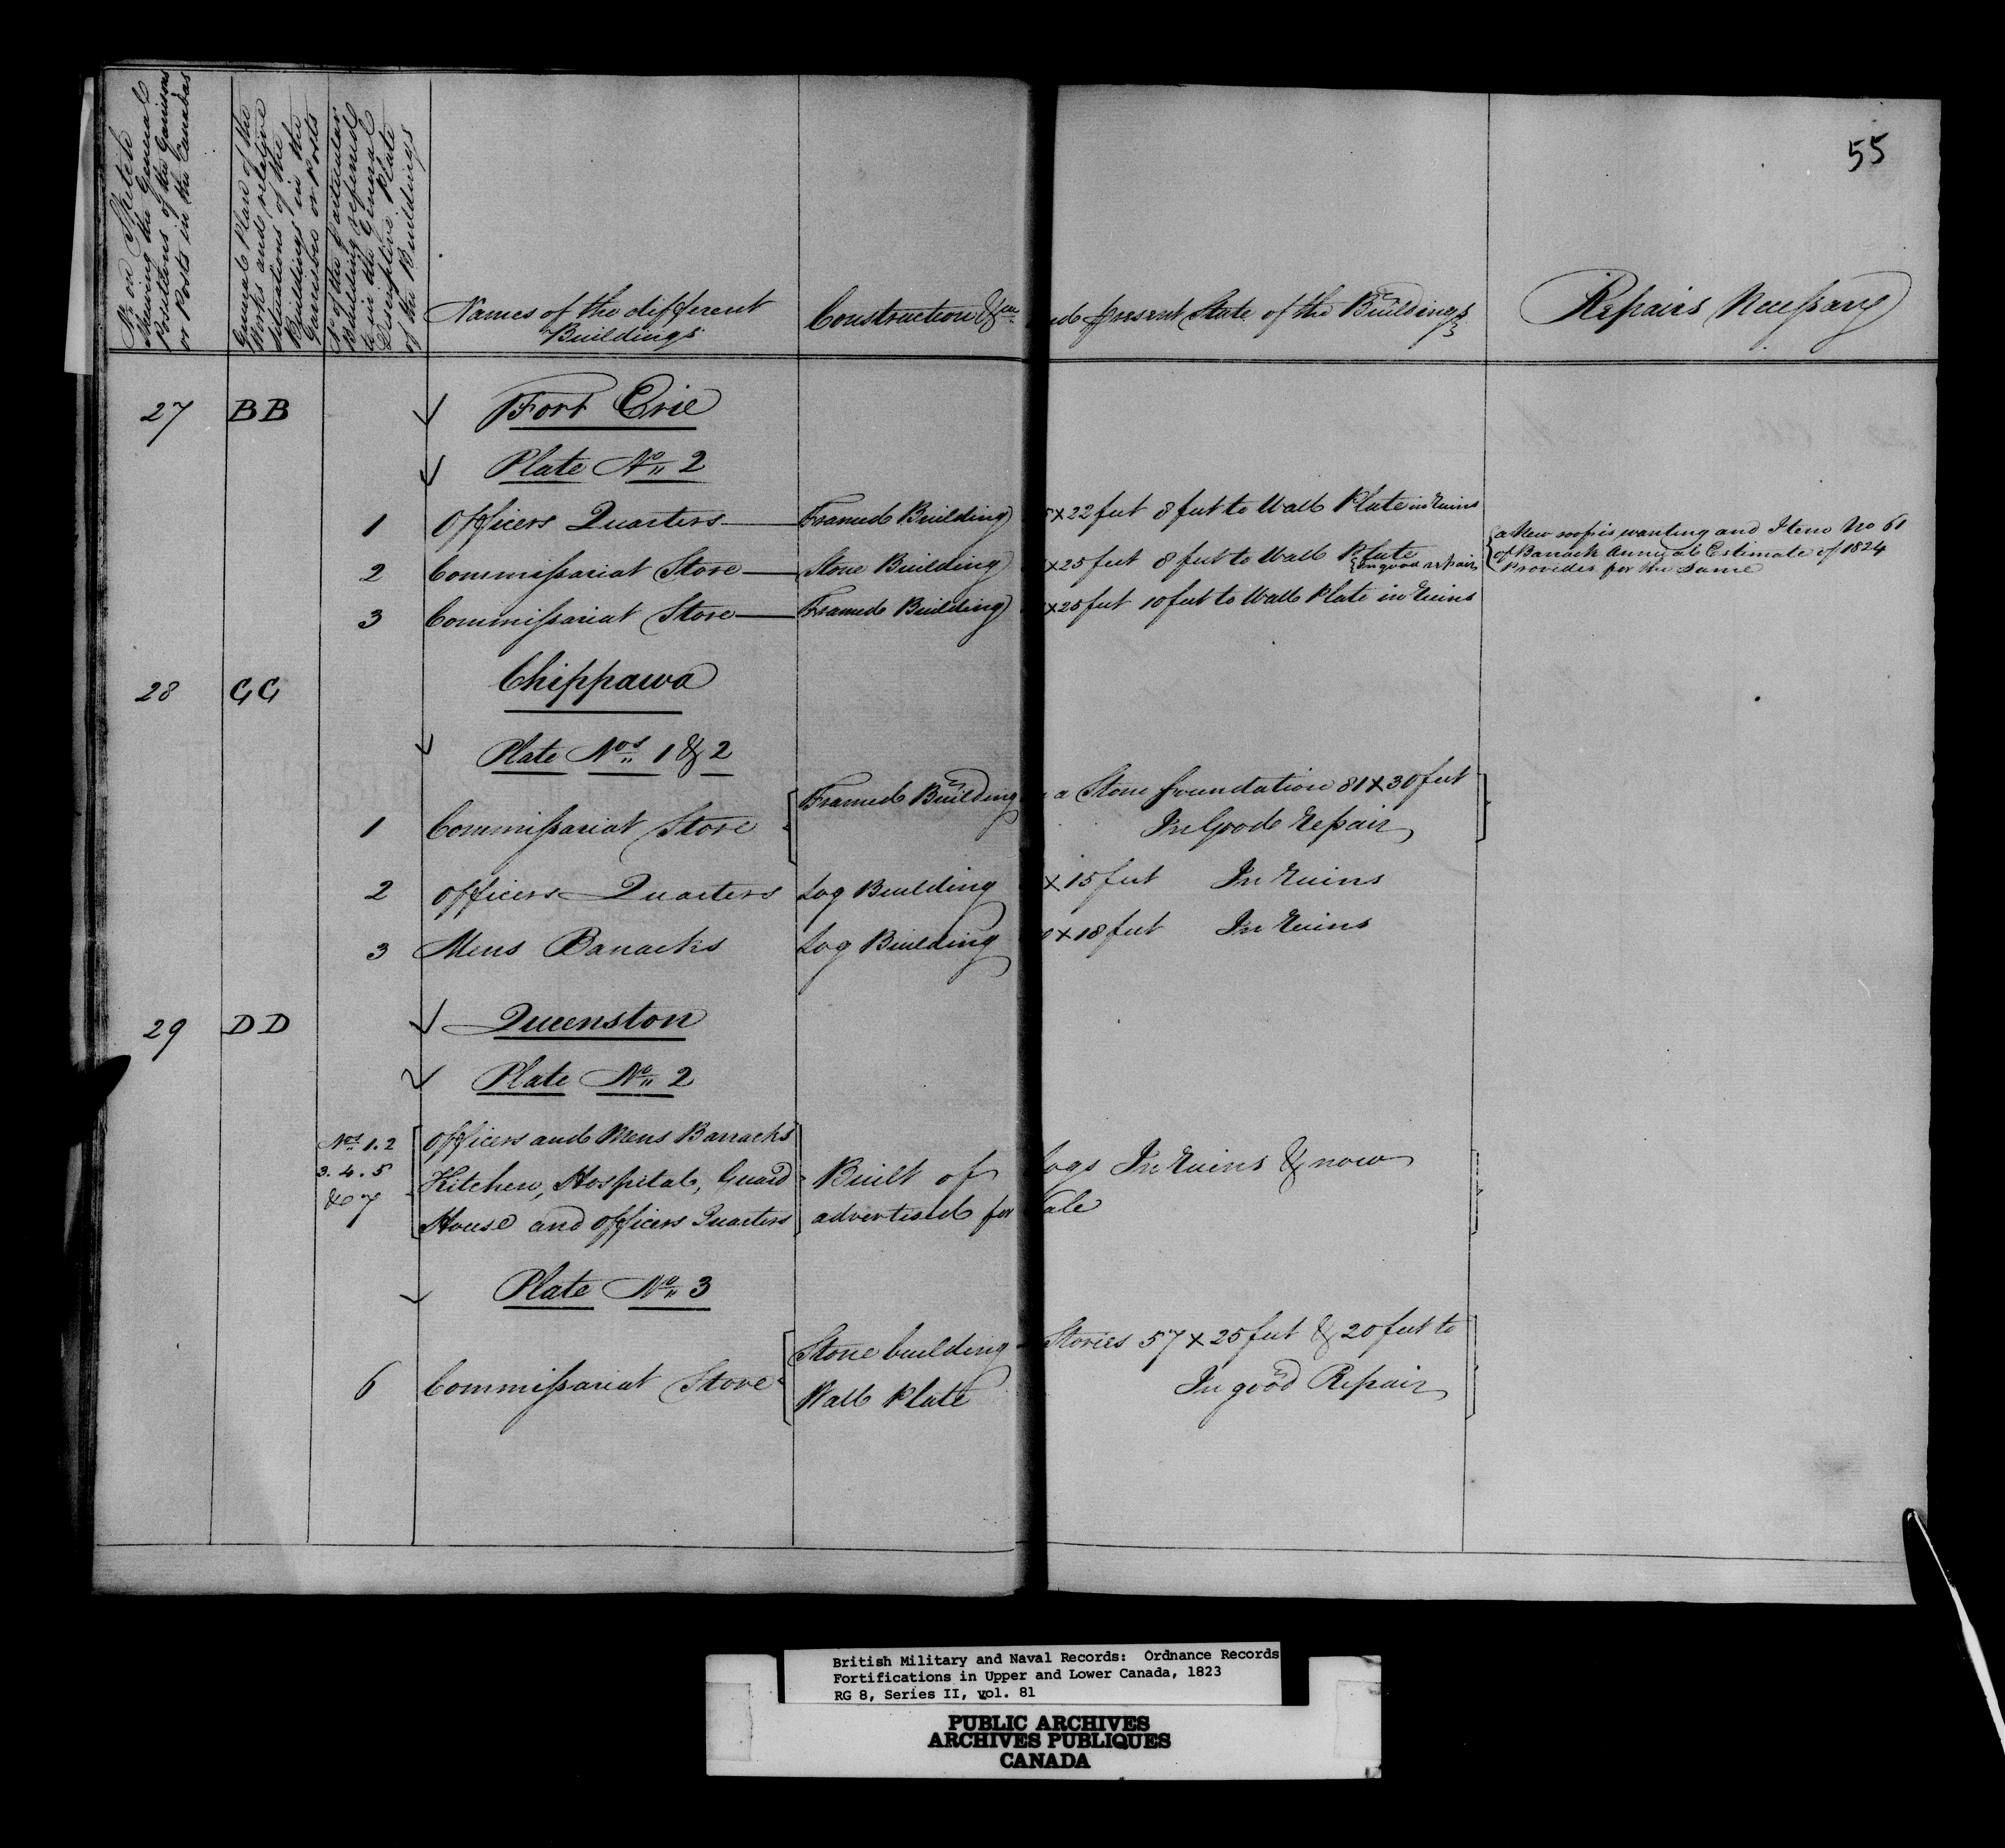 55
No on Sketch
shewing the General
Positions of the Garrisons
or Posts in the Canadas
General Plan of the
Works and relative
situations of the
Buildings in the
Garrisons or Posts
No of the particular
Building refered
to in the General
Descriptive Plate
of the Buildings
Names of the different
Buildings
Construction &ca
nd present State of the Buildings
Repairs Necessary
27 BB Fort Erie
Plate No 2
1 Officers Quarters Framed Building x22 feet 8 feet to Wall Plate in ruins
2 Commissariat Store Stone Building x25 feet 8 feet to Wall Plate
in good repair
a New roof is wanting and Item No 61
of Barrack Annual Estimate of 1824
Provides for the Same
3 Commissariat Store Framed Building x25 feet 10 feet to Wall Plate in ruins
28 GG Chippawa
Plate Nos 1 & 2
Framed Building a Stone foundation 81x30 feet
1 Commissariat Store In Good repair
2 Officers Quarters Log Building x15 feet In ruins
3 Mens Barracks Log Building x18 feet In ruins
29 DD Queenston
Plate No 2
Nos 1.2 Officers and Mens Barracks
3.4.5 Kitchen, Hospital, Guard Built of logs In ruins & now
& 7 House and officers Quarters advertised for Sale
Plate No 3
Stone building Stories 57 x 25 feet & 20 feet to
6 Commissariat Store Wall Plate In good Repair
British Military and Naval Records: Ordnance Records
Fortifications in Upper and Lower Canada, 1823
RG 8, Series II, vol. 81
PUBLIC ARCHIVES
ARCHIVES PUBLIQUES
CANADA